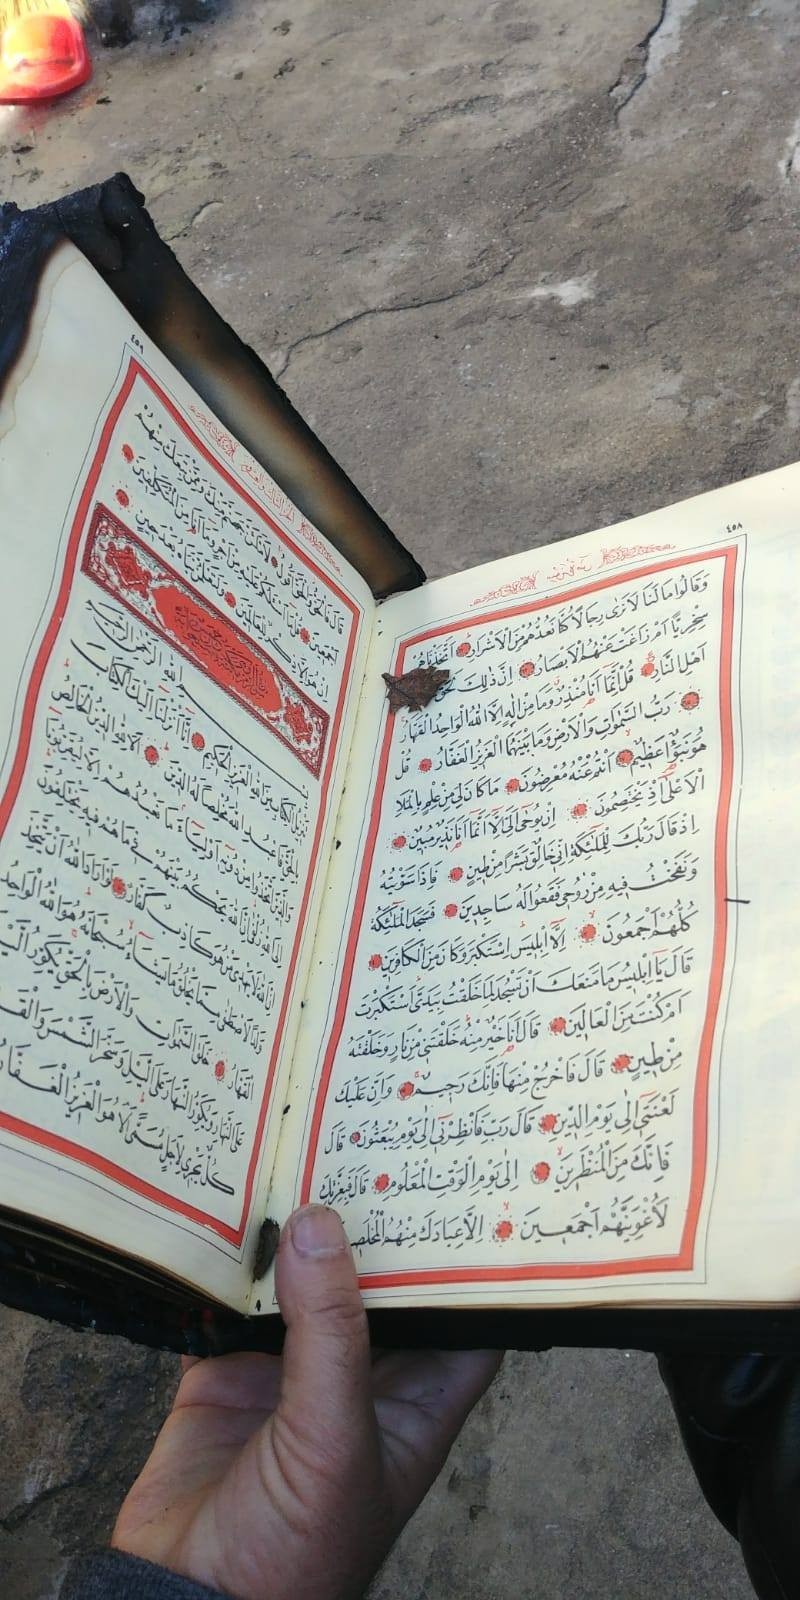 ٤٥٨
وَقَالُوا مَا لَنَا لَا نَرٰى رِجَالًا كُنَّا نَعُدُّهُمْ مِنَ الْاَشْرَارِ اَتَّخَذْنَاهُمْ
سِخْرِيًّا اَمْ زَاغَتْ عَنْهُمُ الْاَبْصَارُ اِنَّ ذٰلِكَ لَحَقٌّ
اَهْلِ النَّارِ قُلْ اِنَّمَا اَنَا مُنْذِرٌ وَمَا مِنْ اِلٰهٍ اِلَّا اللهُ الْوَاحِدُ الْقَهَّارُ
رَبُّ السَّمٰوَاتِ وَالْاَرْضِ وَمَا بَيْنَهُمَا الْعَزِيزُ الْغَفَّارُ قُلْ
هُوَ نَبَؤٌا عَظِيمٌ اَنْتُمْ عَنْهُ مُعْرِضُونَ مَا كَانَ لِيَ مِنْ عِلْمٍ بِالْمَلَاِ
الْاَعْلٰى اِذْ يَخْتَصِمُونَ اِنْ يُوحٰى اِلَيَّ اِلَّا اَنَّمَا اَنَا نَذِيرٌ مُبِينٌ
اِذْ قَالَ رَبُّكَ لِلْمَلٰئِكَةِ اِنِّي خَالِقٌ بَشَرًا مِنْ طِينٍ فَاِذَا سَوَّيْتُهُ
وَنَفَخْتُ فِيهِ مِنْ رُوحِي فَقَعُوا لَهُ سَاجِدِينَ فَسَجَدَ الْمَلٰئِكَةُ
كُلُّهُمْ اَجْمَعُونَ اِلَّا اِبْلِيسَ اِسْتَكْبَرَ وَكَانَ مِنَ الْكَافِرِينَ
قَالَ يَا اِبْلِيسُ مَا مَنَعَكَ اَنْ تَسْجُدَ لِمَا خَلَقْتُ بِيَدَيَّ اَسْتَكْبَرْتَ
اَمْ كُنْتَ مِنَ الْعَالِينَ قَالَ اَنَا خَيْرٌ مِنْهُ خَلَقْتَنِي مِنْ نَارٍ وَخَلَقْتَهُ
مِنْ طِينٍ قَالَ فَاخْرُجْ مِنْهَا فَاِنَّكَ رَجِيمٌ وَاِنَّ عَلَيْكَ
لَعْنَتِي اِلٰى يَوْمِ الدِّينِ قَالَ رَبِّ فَاَنْظِرْنِي اِلٰى يَوْمِ يُبْعَثُونَ قَالَ
فَاِنَّكَ مِنَ الْمُنْظَرِينَ اِلٰى يَوْمِ الْوَقْتِ الْمَعْلُومِ قَالَ فَبِعِزَّتِكَ
لَاُغْوِيَنَّهُمْ اَجْمَعِينَ اِلَّا عِبَادَكَ مِنْهُمُ
٤٥٩
قَالَ فَالْحَقُّ وَالْحَقَّ اَقُولُ لَاَمْلَـَٔنَّ جَهَنَّمَ مِنْكَ وَمِمَّنْ تَبِعَكَ مِنْهُمْ
اَجْمَعِينَ قُلْ مَا اَسْـَٔلُكُمْ عَلَيْهِ مِنْ اَجْرٍ وَمَا اَنَا مِنَ الْمُتَكَلِّفِينَ
اِنْ هُوَ اِلَّا ذِكْرٌ لِلْعَالَمِينَ وَلَتَعْلَمُنَّ نَبَاَهُ بَعْدَ حِينٍ
بِسْمِ اللهِ الرَّحْمٰنِ الرَّحِيمِ
تَنْزِيلُ الْكِتَابِ مِنَ اللهِ الْعَزِيزِ الْحَكِيمِ اِنَّا اَنْزَلْنَا اِلَيْكَ الْكِتَابَ
بِالْحَقِّ فَاعْبُدِ اللهَ مُخْلِصًا لَهُ الدِّينَ اَلَا لِلّٰهِ الدِّينُ الْخَالِصُ
وَالَّذِينَ اتَّخَذُوا مِنْ دُونِهِ اَوْلِيَاءَ مَا نَعْبُدُهُمْ اِلَّا لِيُقَرِّبُونَا
اِلَى اللهِ زُلْفٰى اِنَّ اللهَ يَحْكُمُ بَيْنَهُمْ فِي مَا هُمْ فِيهِ يَخْتَلِفُونَ
اِنَّ اللهَ لَا يَهْدِي مَنْ هُوَ كَاذِبٌ كَفَّارٌ لَوْ اَرَادَ اللهُ اَنْ يَتَّخِذَ
وَلَدًا لَاصْطَفٰى مِمَّا يَخْلُقُ مَا يَشَاءُ سُبْحَانَهُ هُوَ اللهُ الْوَاحِدُ
الْقَهَّارُ خَلَقَ السَّمٰوَاتِ وَالْاَرْضَ بِالْحَقِّ يُكَوِّرُ
عَلَى النَّهَارِ وَيُكَوِّرُ النَّهَارَ عَلَى الَّيْلِ وَسَخَّرَ الشَّمْسَ
كُلٌّ يَجْرِي لِاَجَلٍ مُسَمًّى اَلَا هُوَ الْعَزِيزُ الْغَفَّارُ